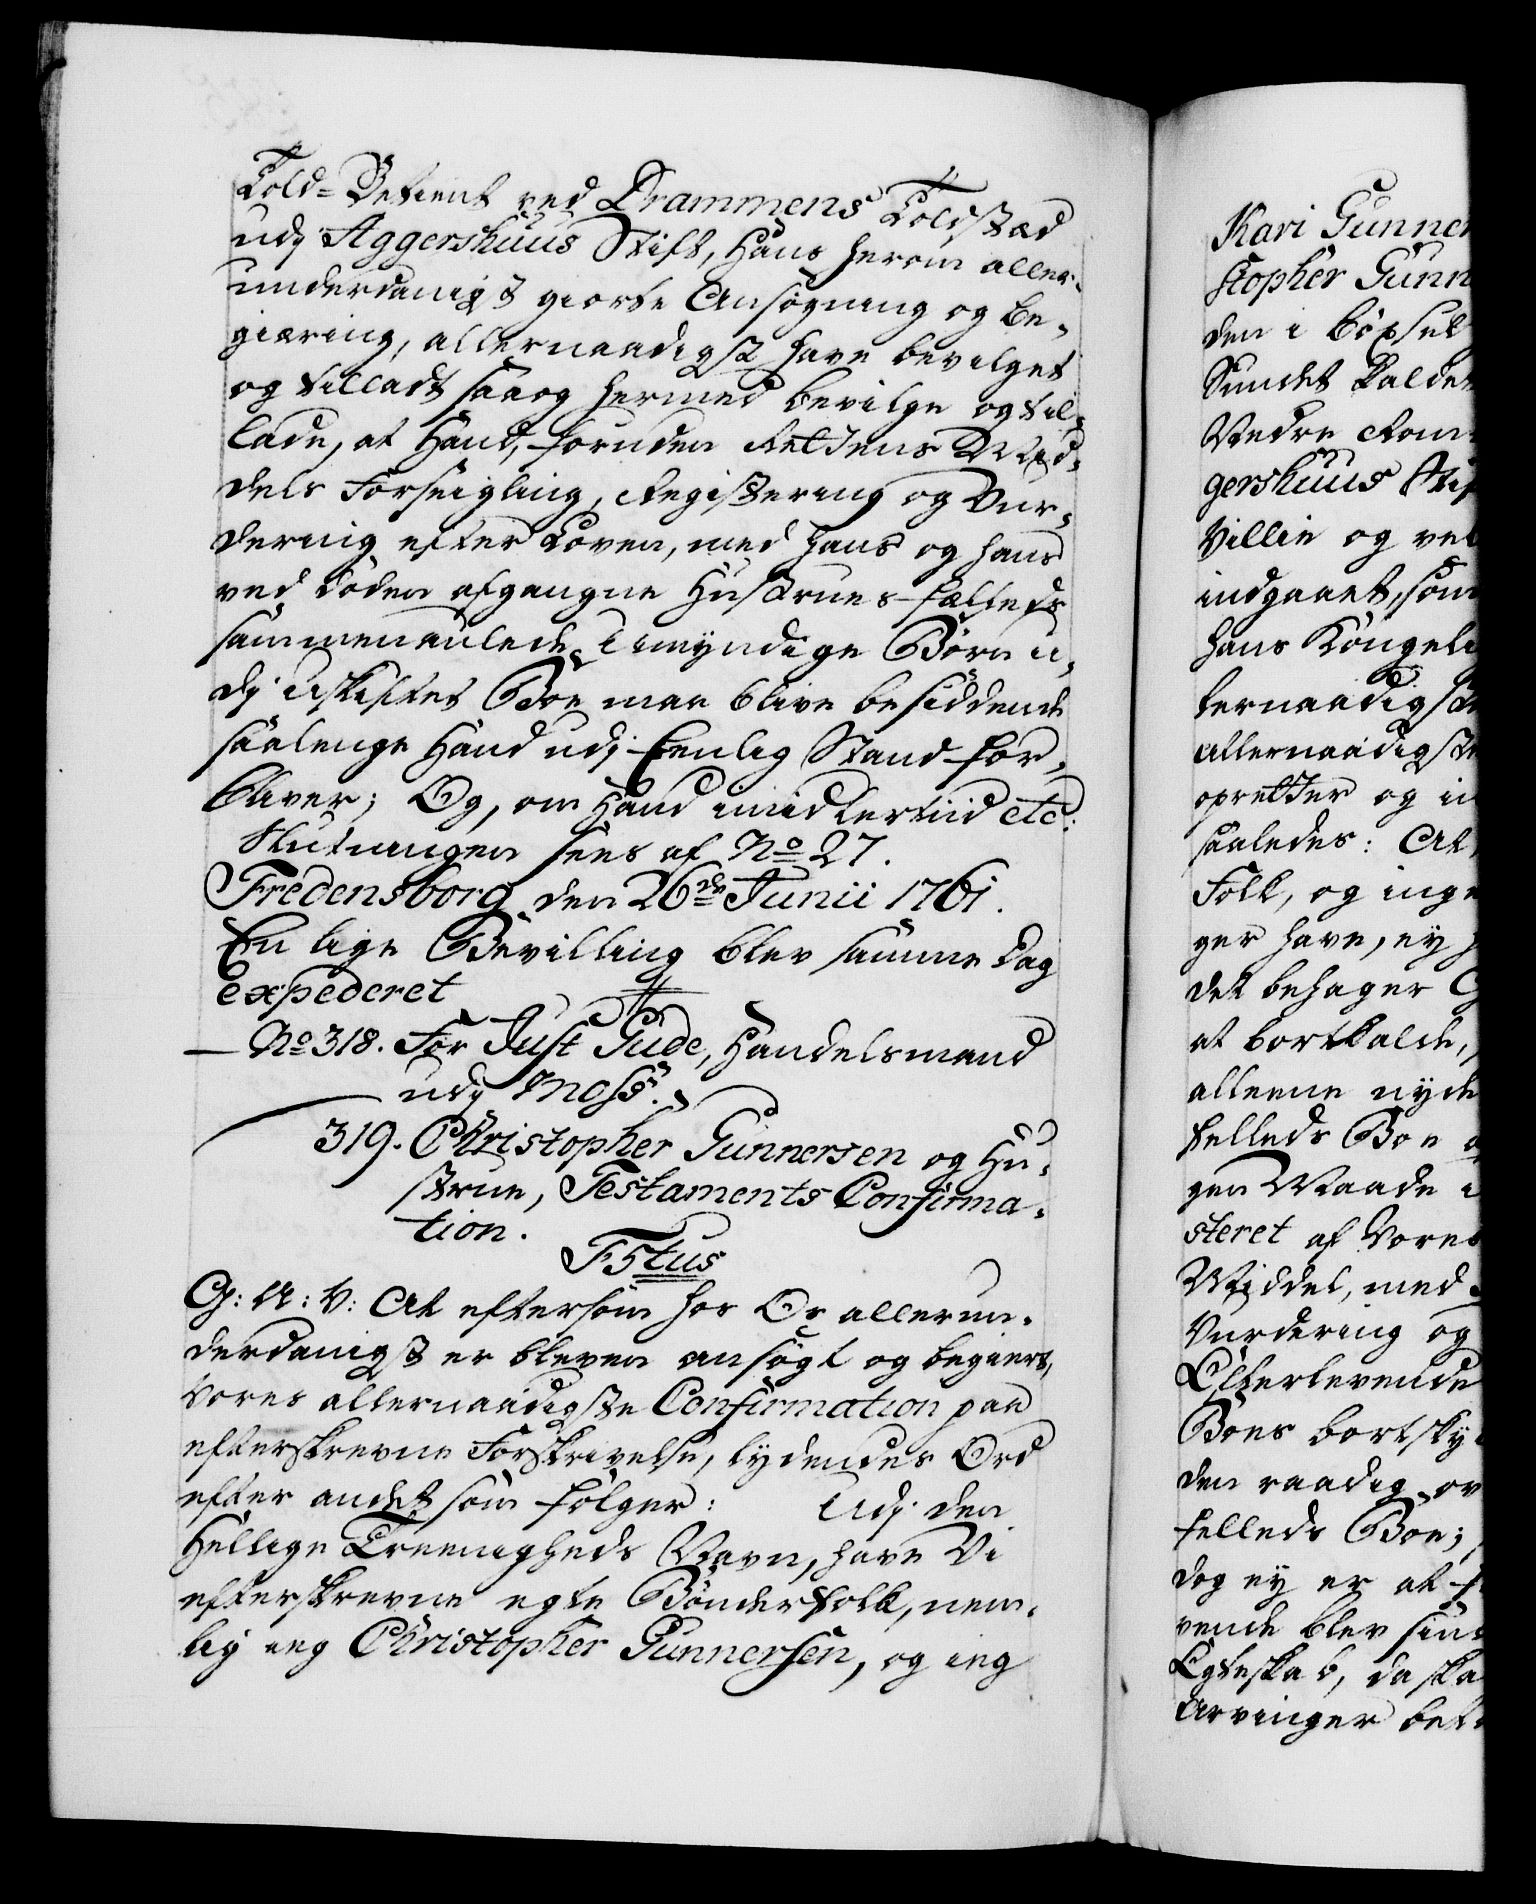 Told-Betient ved Drammens Toldsted
udj Aggershuus Stift, Hans herom aller-
underdanigst giorte Ansøgning og be-
giæring, allernaadigst have bevilget
og tilladt saa og hermed bevilge og til-
lade, at Hand, foruden Rettens Mid-
dels Forseigling, Registering og Vur-
dering efter Loven, med hans og hans
ved Døden afgangne Hustrues fælleds
sammenaulede Umyndige Børn u-
dj uskiftet Boe maa blive besiddende
saalenge Hand udj Eenlig Stand for-
bliver; Og, om Hand imidlertiid etc:
Slutningen sees af No 27.
Fredensborg den 26de Junii 1761.
En lige Bevilling blev samme Dag
expederet
No 318. For Just Gude, Handelsmand
udj Moss.
319. Christopher Gunnersen og Hu-
strue, Testaments Confirma-
tion.
F5tus
G: A: V: At eftersom hos Os allerun-
derdanigst er bleven ansøgt og begiert,
Vores allernaadigste Confirmation paa
efterskrevne Forskrivelse, lydendes Ord
efter andet som følger: Udj den
Hellige Treenigheds Navn, have Vi
efterskrevne egte Bønderfolk, nem-
lig ieg Christopher Gunnersen, og ieg
Kari Gunner
stopher Gunn
den i Bøxsel
Sundet kaldet
Nedre Rom
gershuus Stif
Villie og vel
indgaaet, som
hans Kongeli
lernaadigste
allernaadigste
opretter og in
saaledes: At,
Folk, og inge
ger have, ey
det behager G
at bortkalde,
alleene nyde
felleds Boe
gen Maade i
steret af Vores
Middel, med
Vurdering og
Efterlevende
Boes bortsky
den raadig ov
felleds Boe;
dog ey er at f
vende blev sin
Egteskab, da ska
Arvinger bet